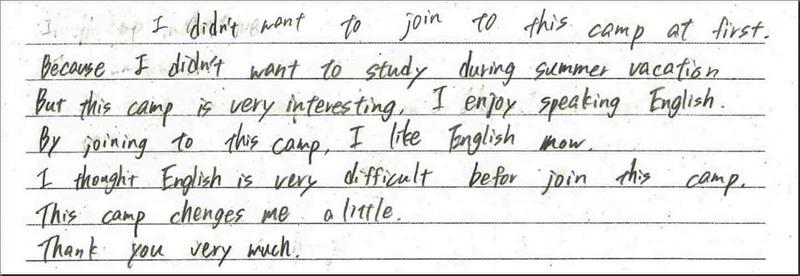 I didn't want to join to this camp at first.
Because I didn't want to study during summer vacation
But this camp is very interesting, I enjoy speaking English.
By joining to this camp, I like English now.
I thought English is very difficult befor join this camp.
This camp chenges me a little.
Thank you very much.